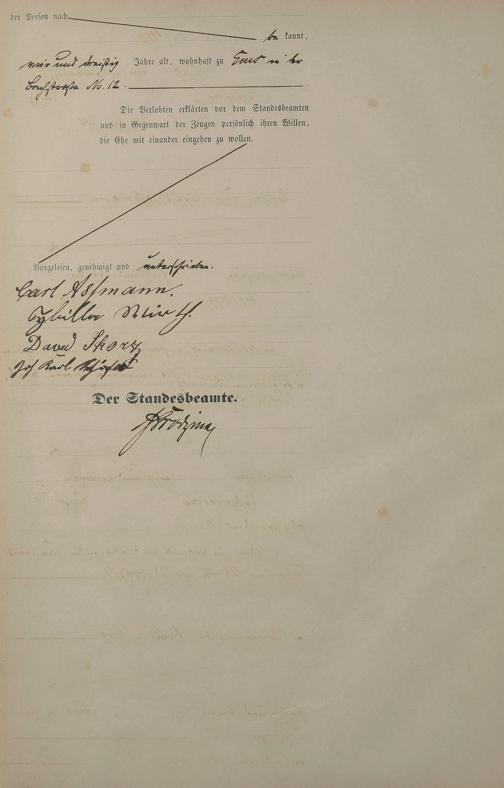 der Person nach
be kannt,
vier und dreißig Jahre alt, wohnhaft zu Ems in der
Bachstraße No. 12.
Die Verlobten erklärten vor dem Standesbeamten
und in Gegenwart der Zeugen persönlich ihren Willen,
die Ehe mit einander eingehen zu wollen.
Vorgelesen, genehmigt und unterschrieben.
Carl Aßmann.
Sybilla Wirth.
David
Jos Karl
Der Standesbeamte.